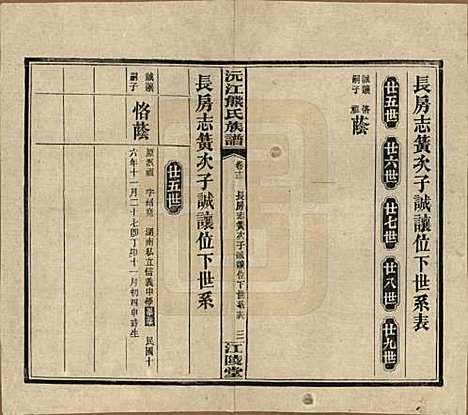 長房志簧次子誠讓位下世系表
廿五世
廿六世
廿七世
廿八世
廿九世
誠讓嗣子
恪蔭
沅江熊氏族譜
長房志簧次子誠讓位下世系表
三
江陵堂
長房志簧次子誠讓位下世系
廿五世
誠讓嗣子
恪蔭
湖南私立信義中學畢業 民國十
六年十一月二十七即丁卯十一月初四申時生